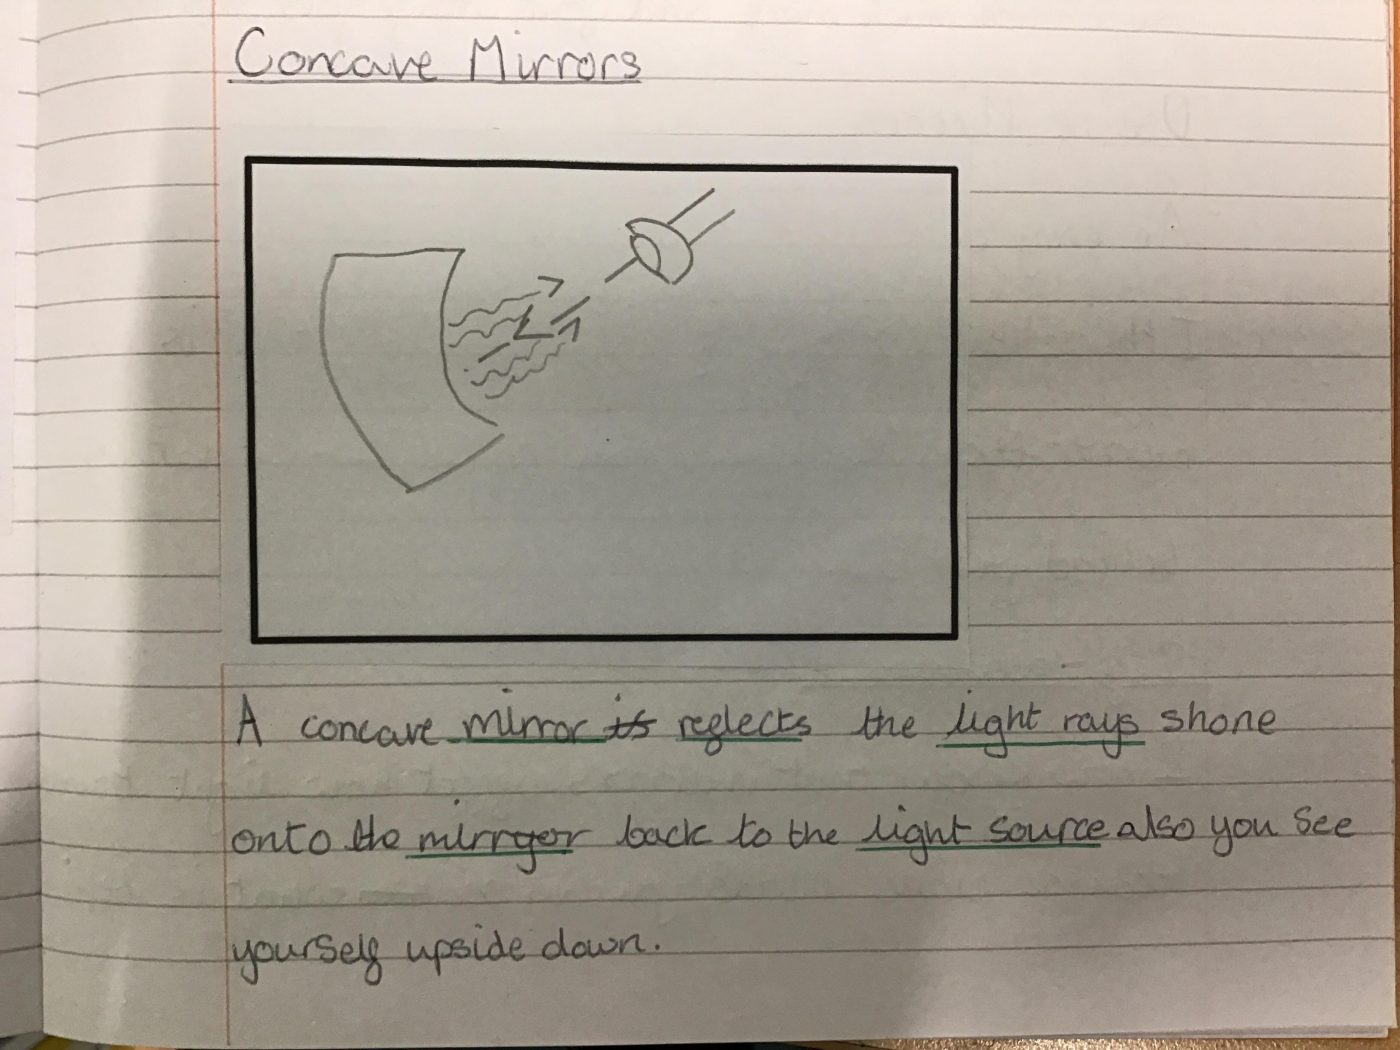 Concave Mirrors
A concave mirror is reglects the light rays shone
onto the mirrgor back to the light source also you see
yourself upside down.